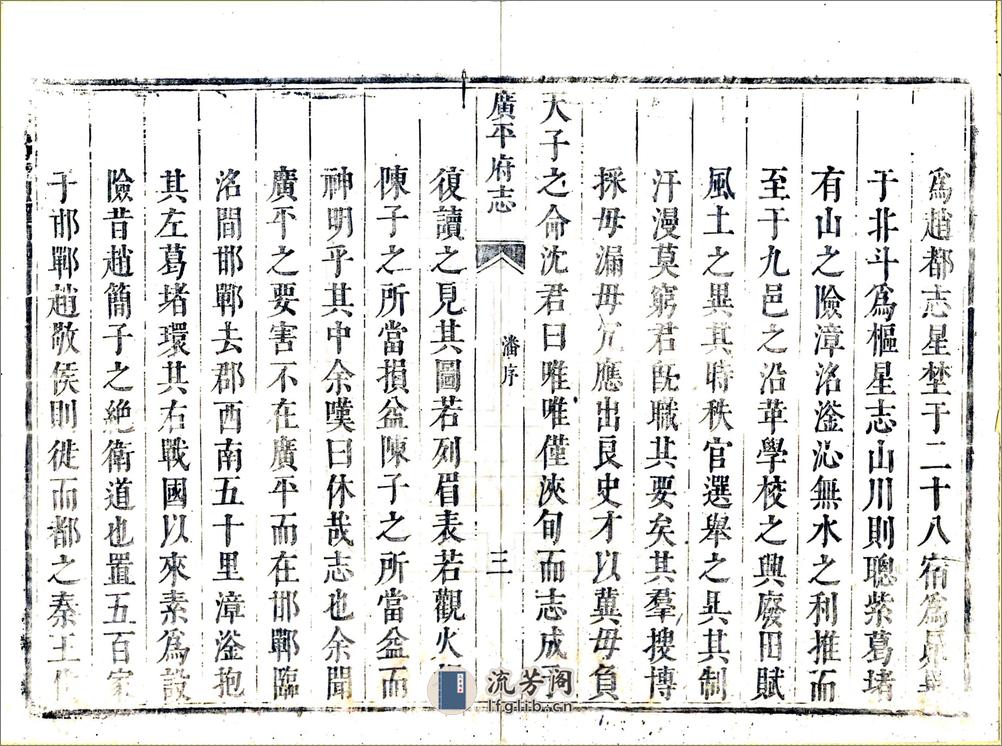 為趙都志星埜于二十八宿為昴畢
于北斗為樞星志山川則聰紫葛堵
有山之險漳洺滏沁無水之利推而
至于九邑之沿革學校之興廢田賦
風土之異其時秩官選舉之異其制
汗漫莫窮君旣職其要矣其羣搜博
採毋漏毋冗應出良史才以冀毋負
天子之命沈君曰唯唯僅浹旬而志成
廣平府志
潘序
三
復讀之見其圖若列眉表若觀火
陳子之所當損益陳子之所當益而
神明乎其中余嘆曰休哉志也余聞
廣平之要害不在廣平而在邯鄲臨
洺間邯鄲去郡西南五十里漳滏抱
其左葛堵環其右戰國以來素為設
險昔趙簡子之絶衛道也置五百家
于邯鄲趙敬侯則徙而都之秦王
流芳阁
lfglib.cn